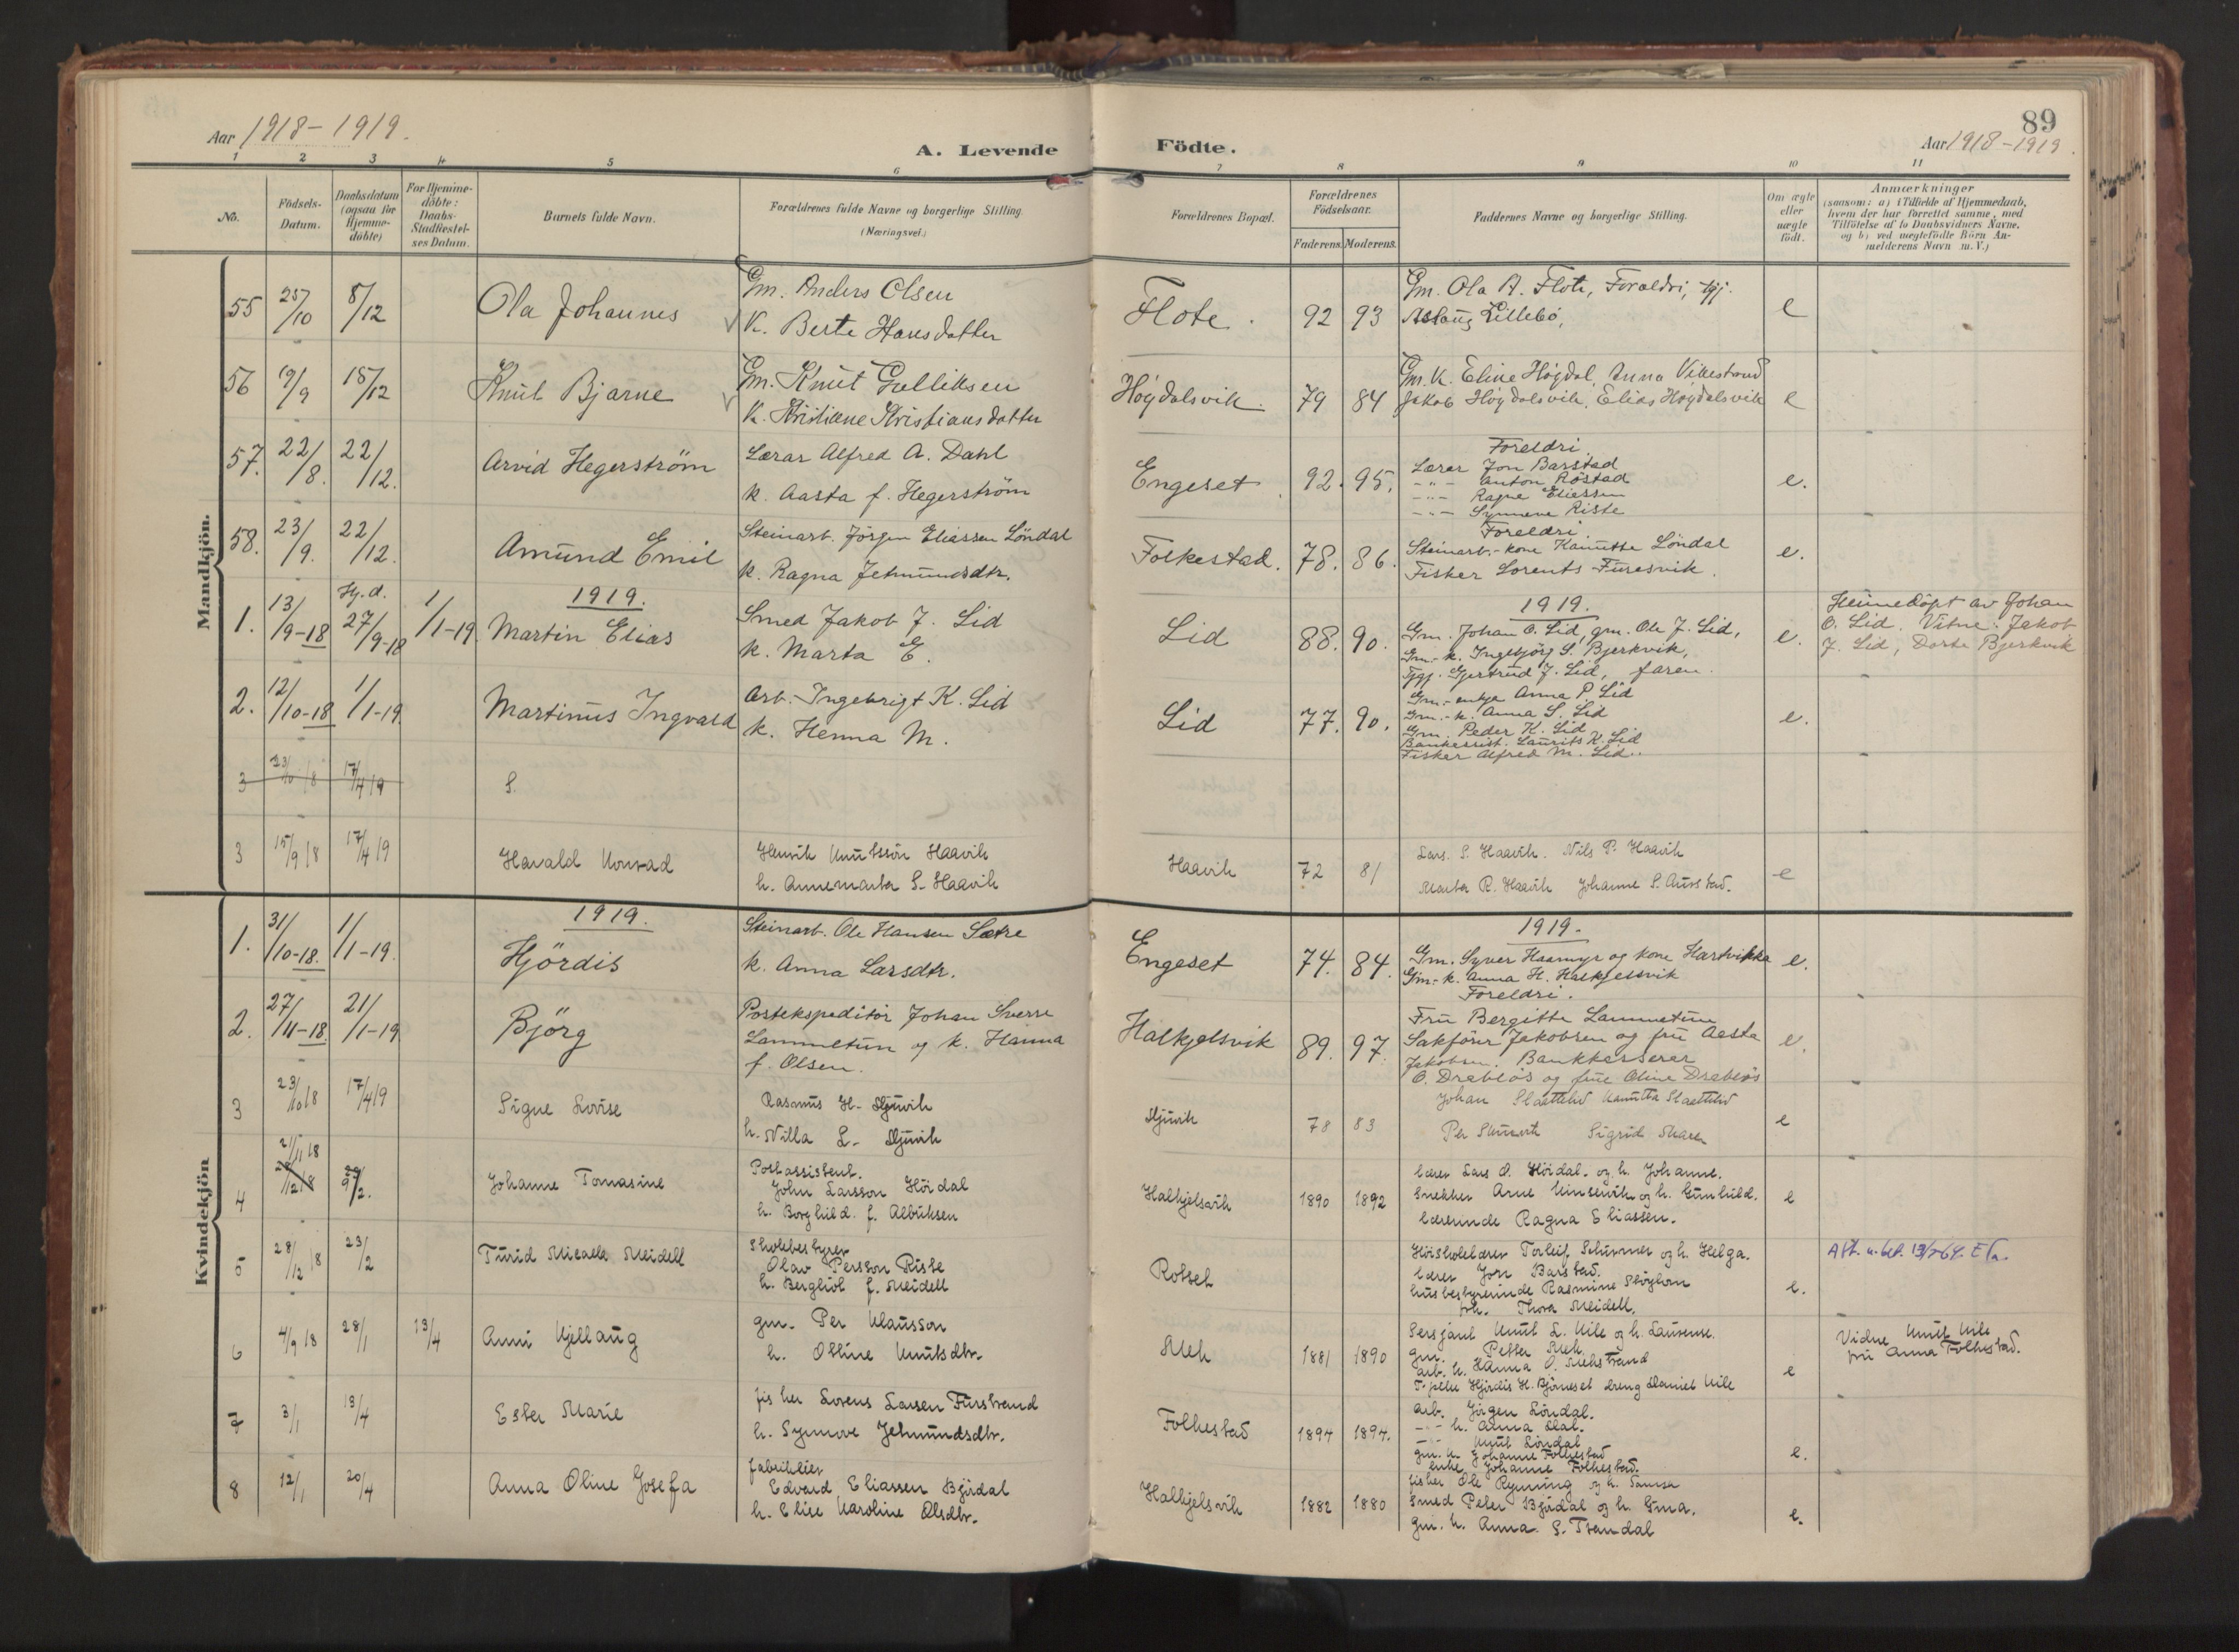 89
Aar 1918-1919.
A. Levende Födte.
Aar 1918-1919.
1 2 3 4 5 6 7 8 9 10 11
No.
Födsels-
Datum.
Daabsdatum
(ogsaa for
Hjemme-
döbte)
For Hjemme-
döbte:
Daabs-
Stadfæstel-
ses Datum.
Barnets fulde Navn.
Forældrenes fulde Navne og borgerlige Stilling
(Næringsvei.)
Forældrenes Bopæl.
Forældrenes
Födselsaar.
Faderens. Moderens.
Faddernes Navne og borgerlige Stilling.
Om ægte
eller
uægte
födt.
Anmærkninger
(saasom: a) i Tilfælde af Hjemmedaab,
hvem der har forrettet samme, med
Tilföielse af to Daabsvidners Navne,
og b) ved uægtefödte Börn An-
melderens Navn m. V.)
Mandkjön.
55 25/10 8/12 Ola Johannes
Gm. Anders Olsen
K. Berte Hansdatter
Flote. 92 93
Gm. Ola A. Flote, Foreldri,
Aslaug Lillebö,
e
56 19/9 15/12 Knut Bjarne
Gm. Knut Gulliksen
K. Kristiane Kristiansdatter
Høydalsvik. 79 84
Gm. K. Eline Høydal, Anna Vikestrand
Jakob Høydalsvik, Elias Høydalsvik
e
57. 22/8. 22/12. Arvid Hegerström
Lærar Alfred A. Dahl
k. Aasta f. Hegerström
Engeset. 92. 95.
Foreldri
Lærer Jon Barstad
-"- Anton Röstad
-"- Ragna Eliassen
-"- Synneve Riste
e.
58. 23/9. 22/12. Amund Emil
Steinarb. Jörgen Eliassen Löndal
k. Ragna Jetmundsdtr.
Folkestad. 78. 86.
Foreldri.
Steinarb.-kone Kanutte Löndal
Fisker Lorents Furesvik.
e.
1919.
1. 13/9-18 Hj.d. 27/9-18 1/1-19. Martin Elias
Smed Jakob J. Lid
k. Marta E.
Lid 88. 90.
1919.
Gm. Johan O. Lid, gm. Ole J. Lid,
Gm.-k. Ingebjörg S. Bjerkvik,
Tjgj. Gjertrud J. Lid, faren.
e.
Heimedöpt av Johan
O. Lid. Vitne: Jakob
J. Lid, Dorte Bjerkvik
2. 12/10-18 1/1-19 Martinus Ingvald
Arb. Ingebrigt K. Lid
k. Henna M.
Lid 77. 90.
Gm.-enkja Anna P. Lid
Gm.-k. Anna S. Lid
Gm. Peder K. Lid
Laurits K. Lid
Fisker Alfred M. Lid.
e.
3 23/10 18 17/4 19 S.
3 15/9 18 17/4 19 Harald Konrad
Henrik Knutsson Haavik
k. Annemarta S. Haavik
Haavik 72 81
Lars. S. Haavik. Nils P. Haavik
Marta R. Haavik Johanne S. Aurstad.
e
Kvindekjön
1919.
1. 31/10-18. 1/1-19. Hjördis
Steinarb. Ole Hansen Sætre
k. Anna Larsdtr.
Engeset 74. 84.
1919.
Gm. Syver Haamyr og kone Hartvikka
Gm.-k. Anna H. Halkjelsvik
Foreldri.
e.
2. 27/11-18. 21/1-19 Björg
Postekspeditör Johan Sverre
Lammetun og k. Hanna
f. Olsen.
Halkjelsvik 89. 97.
Fru Bergitte Lammetun
Sakförer Jakobsen og fru Aasta
Jakobsen. Bankkasserer
O. Drablös og frue Oline Drablös
e.
3 23/10 18 17/4 19 Signe Lovise
Rasmus H. Djuvik
k. Villa L. Djuvik
Djuvik 78 83
Johan Slaattelid Kanutta Slaattelid
Per Sigrid
e
4 21/11 18 Johanne Tomasine
Postassistent.
John Larsson Höidal
k. Borghild f. Albuksen
Halkjelsvik 1890 1892
Lærer Lars O. Höidal. og k. Johanne.
Snekker Arne og k. Gunhild.
Lærerinde Ragna Eliassen.
e
5 28/12 18 23/2 Turid Micaela Meidell
Skolebestyrer
Olav Persson Riste
k. Bergliot f. Meidell
Rotset
Höiskolelærer Torleif og k. Helga.
Lærer Jon Barstad.
husbestyrerinde Rasmine
frk. Thora Meidell.
e.
6 4/9 18 28/1 13/4 Anni Kjellaug
gm. Per Klausson
k. Oline Knutsdtr.
Mek 1881 1890
Sersjant Knut L. Kile og k. Laurense.
gm. Petter Mek
arb. k. Hanna O. Mekstrand
Hjördis H. Björneset dreng Daniel Kile
e
Vidne Knut Kile
fru Anna Folkestad.
7 3/1 13/4 Ester Marie
fisker Lorens Larsen Furstrand
k. Synnove Jetmundsdtr.
Folkestad 1894 1894.
arb. Jörgen Löndal.
-"- k. Anna Dal.
-"- Knut Löndal
gm. k. Johanne Folkestad
enke Johanne Folkestad.
e.
8 12/1 20/4 Anna Oline Josefa
fabrikeier
Edvard Eliassen Björdal
k. Elise Karoline Olsdtr.
Halkjelsvik 1882 1880
fisker Ole Rynning og k.
Smed Peter Björdal og k. Gina.
gm. k. Anna S. Trandal
e.